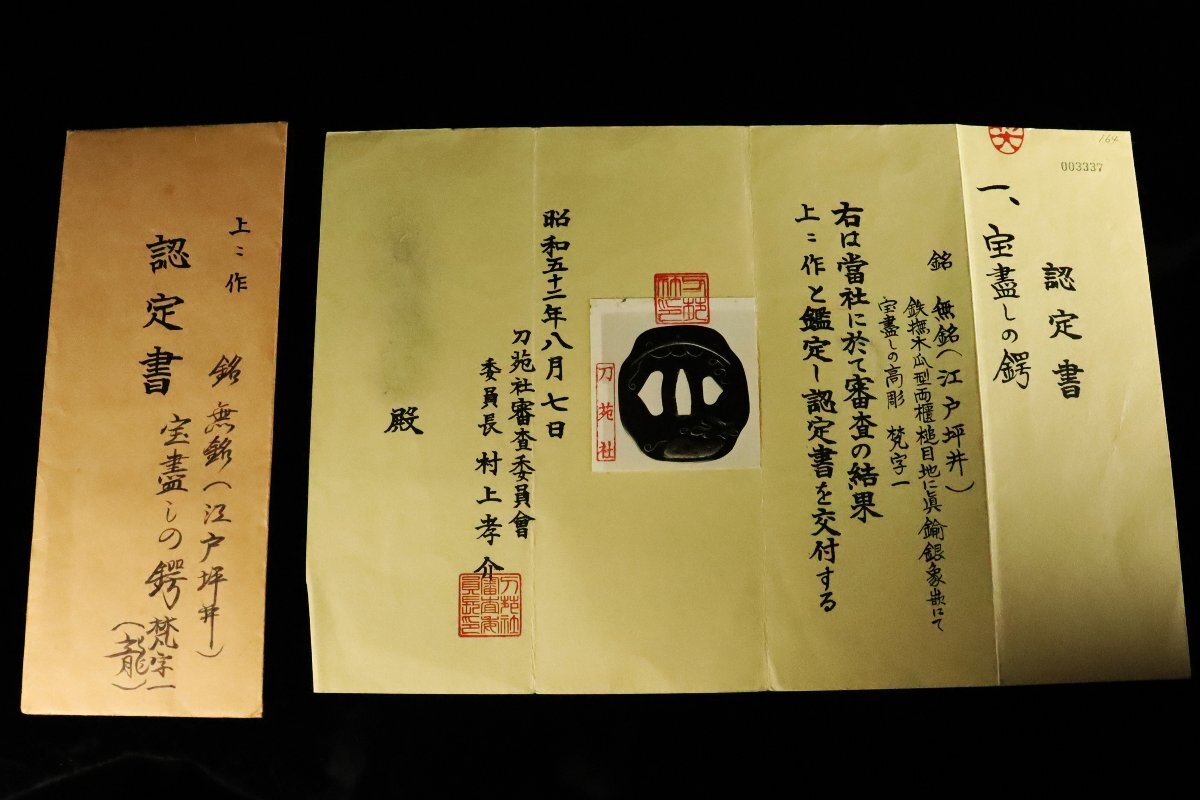 164
003337
認定書
一、宝盡しの鍔
銘 無銘(江戸坪井)
鉄撫木瓜型両櫃槌目地に真鍮銀象嵌にて
宝盡しの高彫 梵字一
右は當社に於て審査の結果
上ミ作と鑑定し認定書を交付する
刀苑社
昭和五十二年八月七日
刀苑社審査委員會
委員長 村上孝介
刀苑社審査委員長印
殿
上ミ作
認定書
銘 無銘(江戸坪井)
宝盡しの鍔 梵字一
(龍)